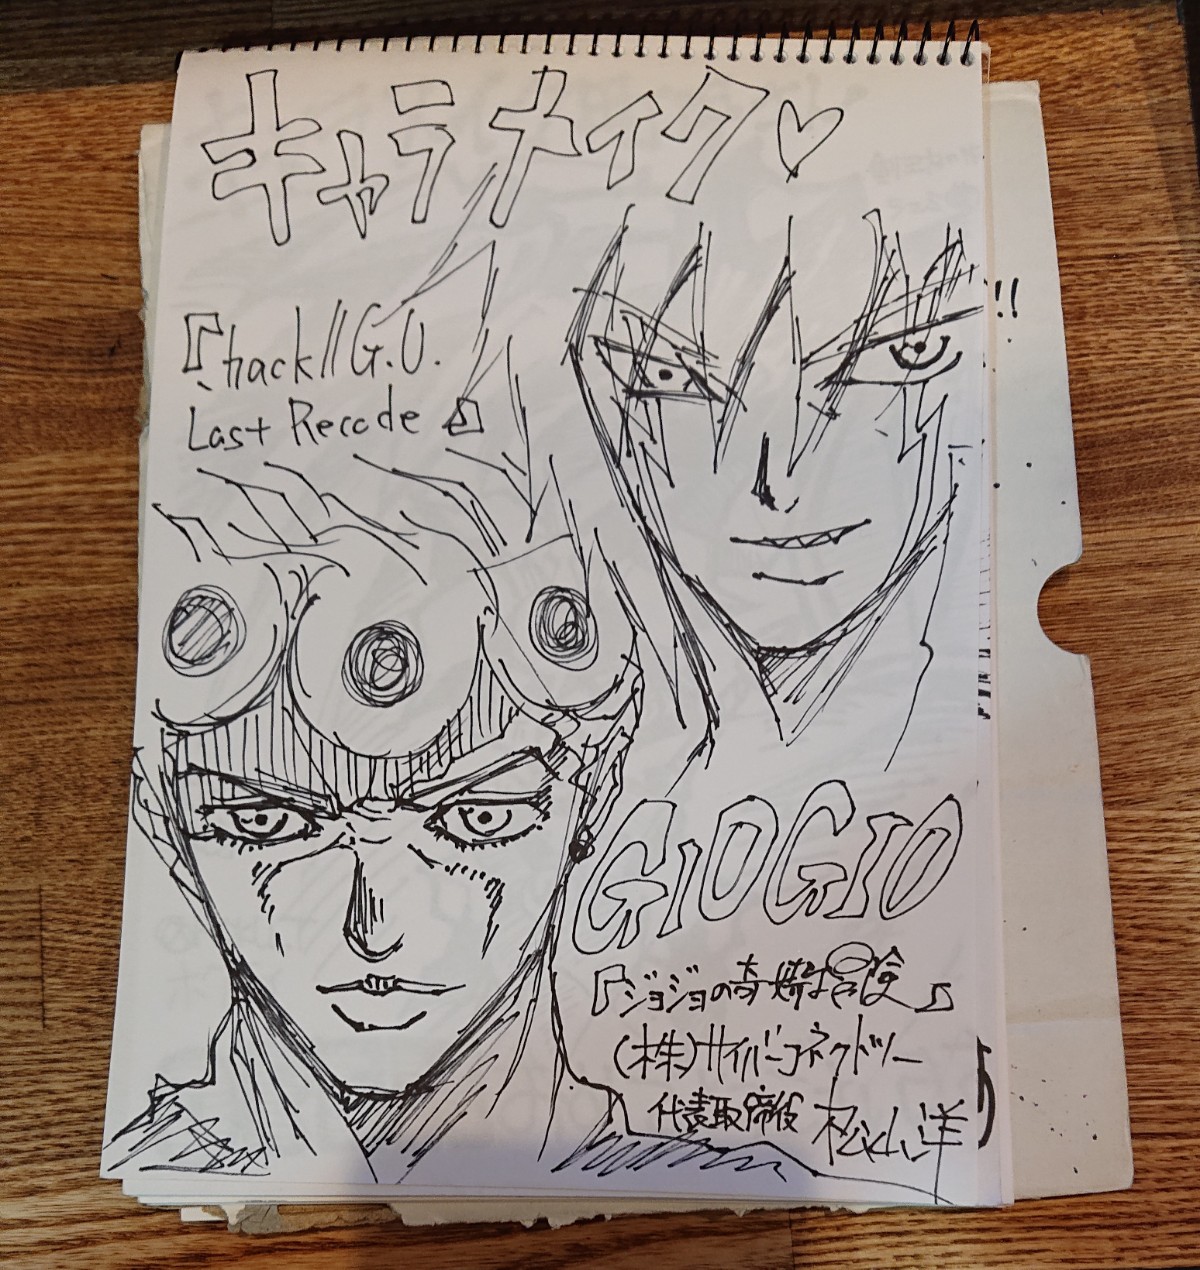 キャラメイク♡
『.hack//G.U.
Last Recode』
GIOGIO
『ジョジョの奇妙な冒険』
(株)サイバーコネクトツー
代表取締役 松山洋
!!